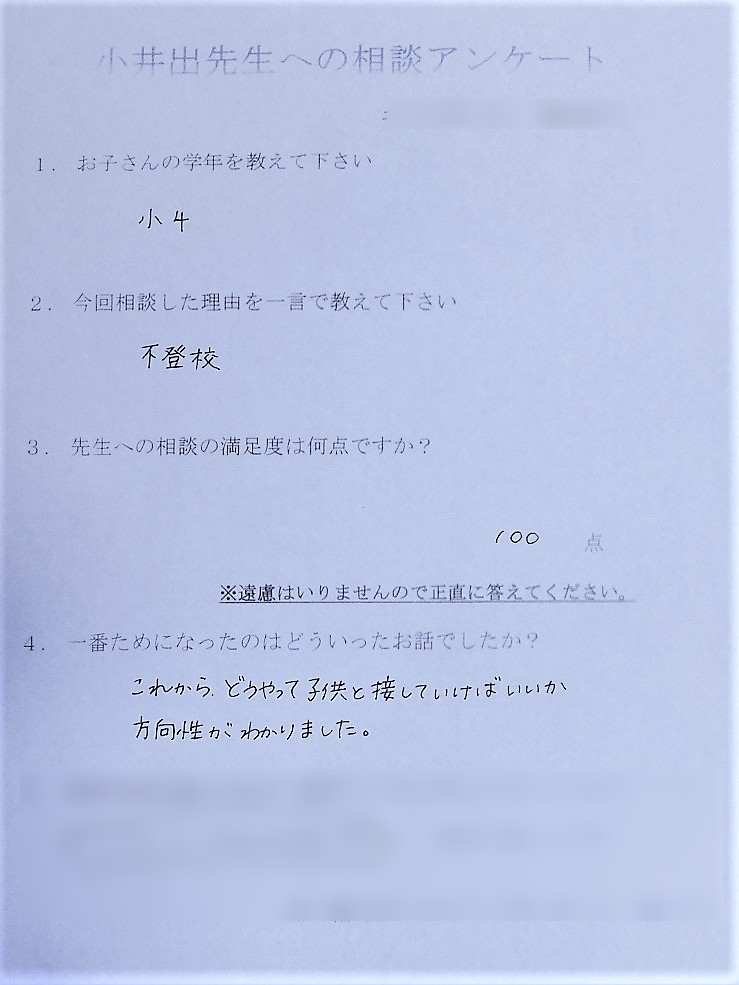 小井出先生への相談アンケート
1. お子さんの学年を教えて下さい
小4
2. 今回相談した理由を一言で教えて下さい
不登校
3. 先生への相談の満足度は何点ですか?
100 点
※遠慮はいりませんので正直に答えてください。
4. 一番ためになったのはどういったお話でしたか?
これから、どうやって子供と接していけばいいか
方向性がわかりました。